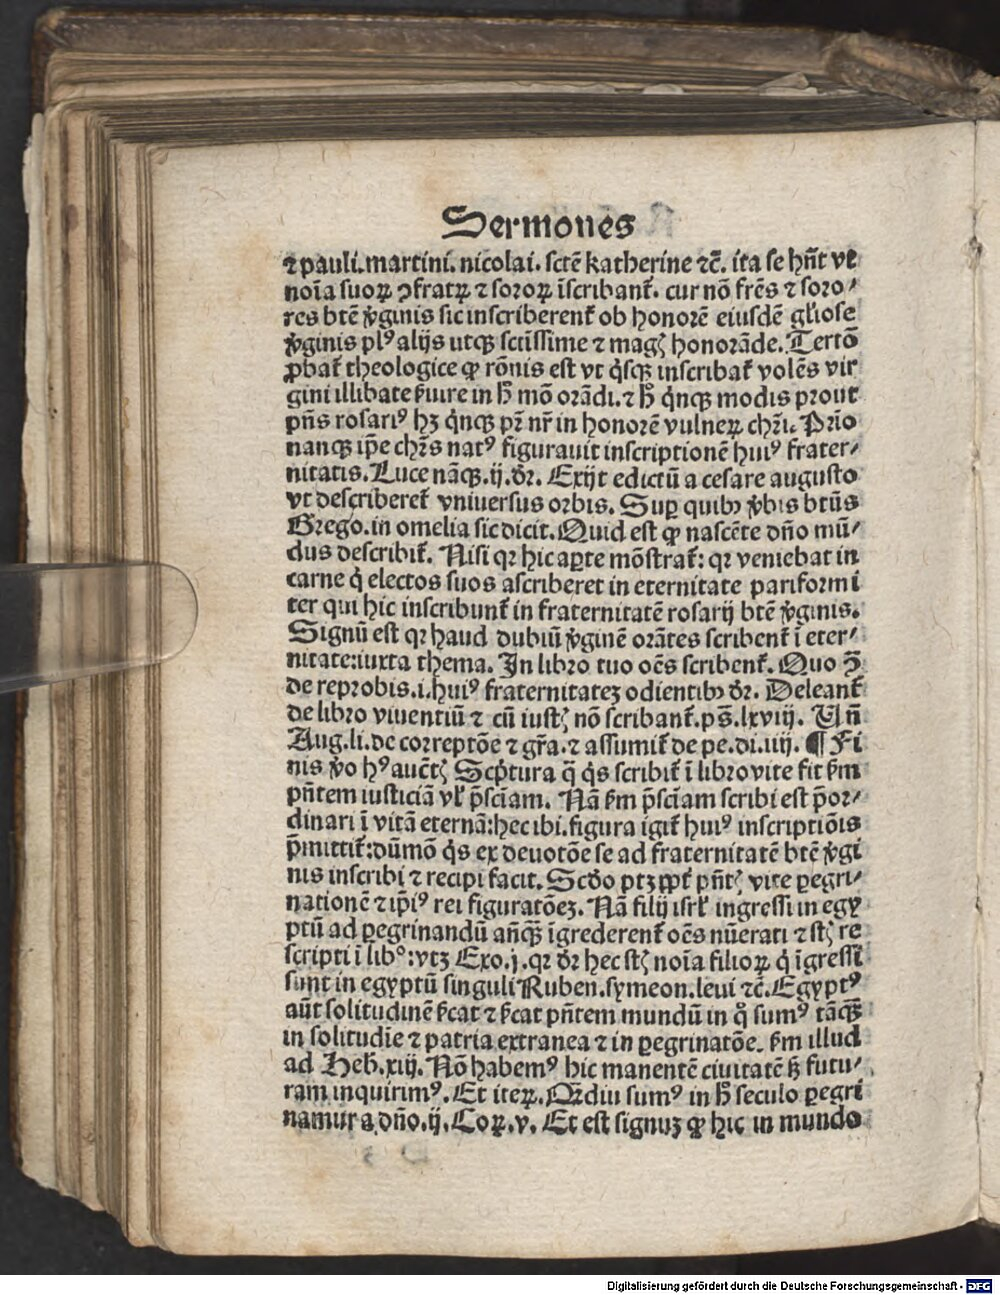 Sermones
⁊ pauli. martini. nicolai. sctē katherine ⁊c̄. ita se hn̄t vt
noīa suoꝝ ꝯfratꝝ ⁊ soroꝝ īscribant᷑. cur nō frēs ⁊ soro⸗
res btē v̄ginis sic inscriberent᷑ ob honorē eiusdē gl̓iose
v̄ginis plꝰ alijs utqꝫ sctissime ⁊ magꝭ honorāde. Tertō
ꝓbat᷑ theologice ꝙ rōnis est vt q̇sqꝫ inscribat᷑ volēs vir
gini illibate ẜuire in h̄ mō orādi. ⁊ hͦ q̇nqꝫ modis prout
pn̄s rosariꝰ hꝫ q̇nqꝫ pr̄ nr̄ in honorē vulneꝝ chr̄i. Prīo
nanqꝫ ip̄e chr̄s natꝰ figurauit inscriptionē huiꝰ frater⸗
nitatis. Luce nāqꝫ .ij. dr̄. Exijt edictū a cesare augusto
vt describeret᷑ vniuersus orbis. Suꝑ quibꝫ v̄bis btūs
Grego. in omelia sic dicit. Quid est ꝙ nascēte dn̄o mū⸗
dus describit᷑. Nisi qꝛ hic aꝑte mōstrat᷑: qꝛ veniebat in
carne q̇ electos suos ascriberet in eternitate pariformi
ter qui hic inscribunt᷑ in fraternitatē rosarij btē v̄ginis.
Signū est qꝛ haud dubiū v̄ginē orātes scribent᷑ ī eter⸗
nitate: iuxta thema. In libro tuo oēs scribent᷑. Quo ꝯ̄
de reprobis. i. huiꝰ fraternitateꝫ odientibꝫ dr̄. Deleant᷑
de libro viuentiū ⁊ cū iustꝭ nō scribant᷑. pś. lxviij. Vn̄
Aug. li. de correptōe ⁊ gr̄a. ⁊ assumit᷑ de pe. di. iiij. ¶ Fi
nis v̄o hꝰ auctꝭ Scṗtura q̄ q̇s scribit᷑ ī libro vite fit ẜm
pn̄tem iusticiā vl̓ p̄sciam. Nā ẜm p̄sciam scribi est p̄or⸗
dinari ī vitā eternā: hec ibi. figura igit᷑ huiꝰ inscriptiōis
p̄mittit᷑: dūmō q̇s ex deuotōe se ad fraternitatē btē v̄gi
nis inscribi ⁊ recipi facit. Scd̄o ptꝫ ꝓpt᷑ pn̄tꝭ vite ꝑegri⸗
nationē ⁊ ip̄iꝰ rei figuratōeꝫ. Nā filij isrl̓ ingressi in egy
ptū ad ꝑegrinandū an̄qꝫ īgrederent᷑ oēs nūerati ⁊ stꝭ re
scripti ī libͦ: vtꝫ Exo. j. qꝛ dr̄ hec stꝭ noīa filioꝝ q̇ īgressi
sunt in egyptū singuli Ruben. symeon. leui ⁊c̄. Egyptꝰ
aūt solitudinē ẜcat ⁊ ẜcat pn̄tem mundū in qͦ sumꝰ tāqꝫ
in solitudīe ⁊ patria extranea ⁊ in ꝑegrinatōe. ẜm illud
ad Heb. xiij. Nō habemꝰ hic manentē ciuitatē sꝫ futu⸗
ram inquirimꝰ. Et iteꝝ. Qm̄diu sumꝰ in hͦ seculo ꝑegri
namur a dn̄o. ij. Coꝝ. v. Et est signuꝫ ꝙ hic in mundo
Digitalisierung gefördert durch die Deutsche Forschungsgemeinschaft - DFG